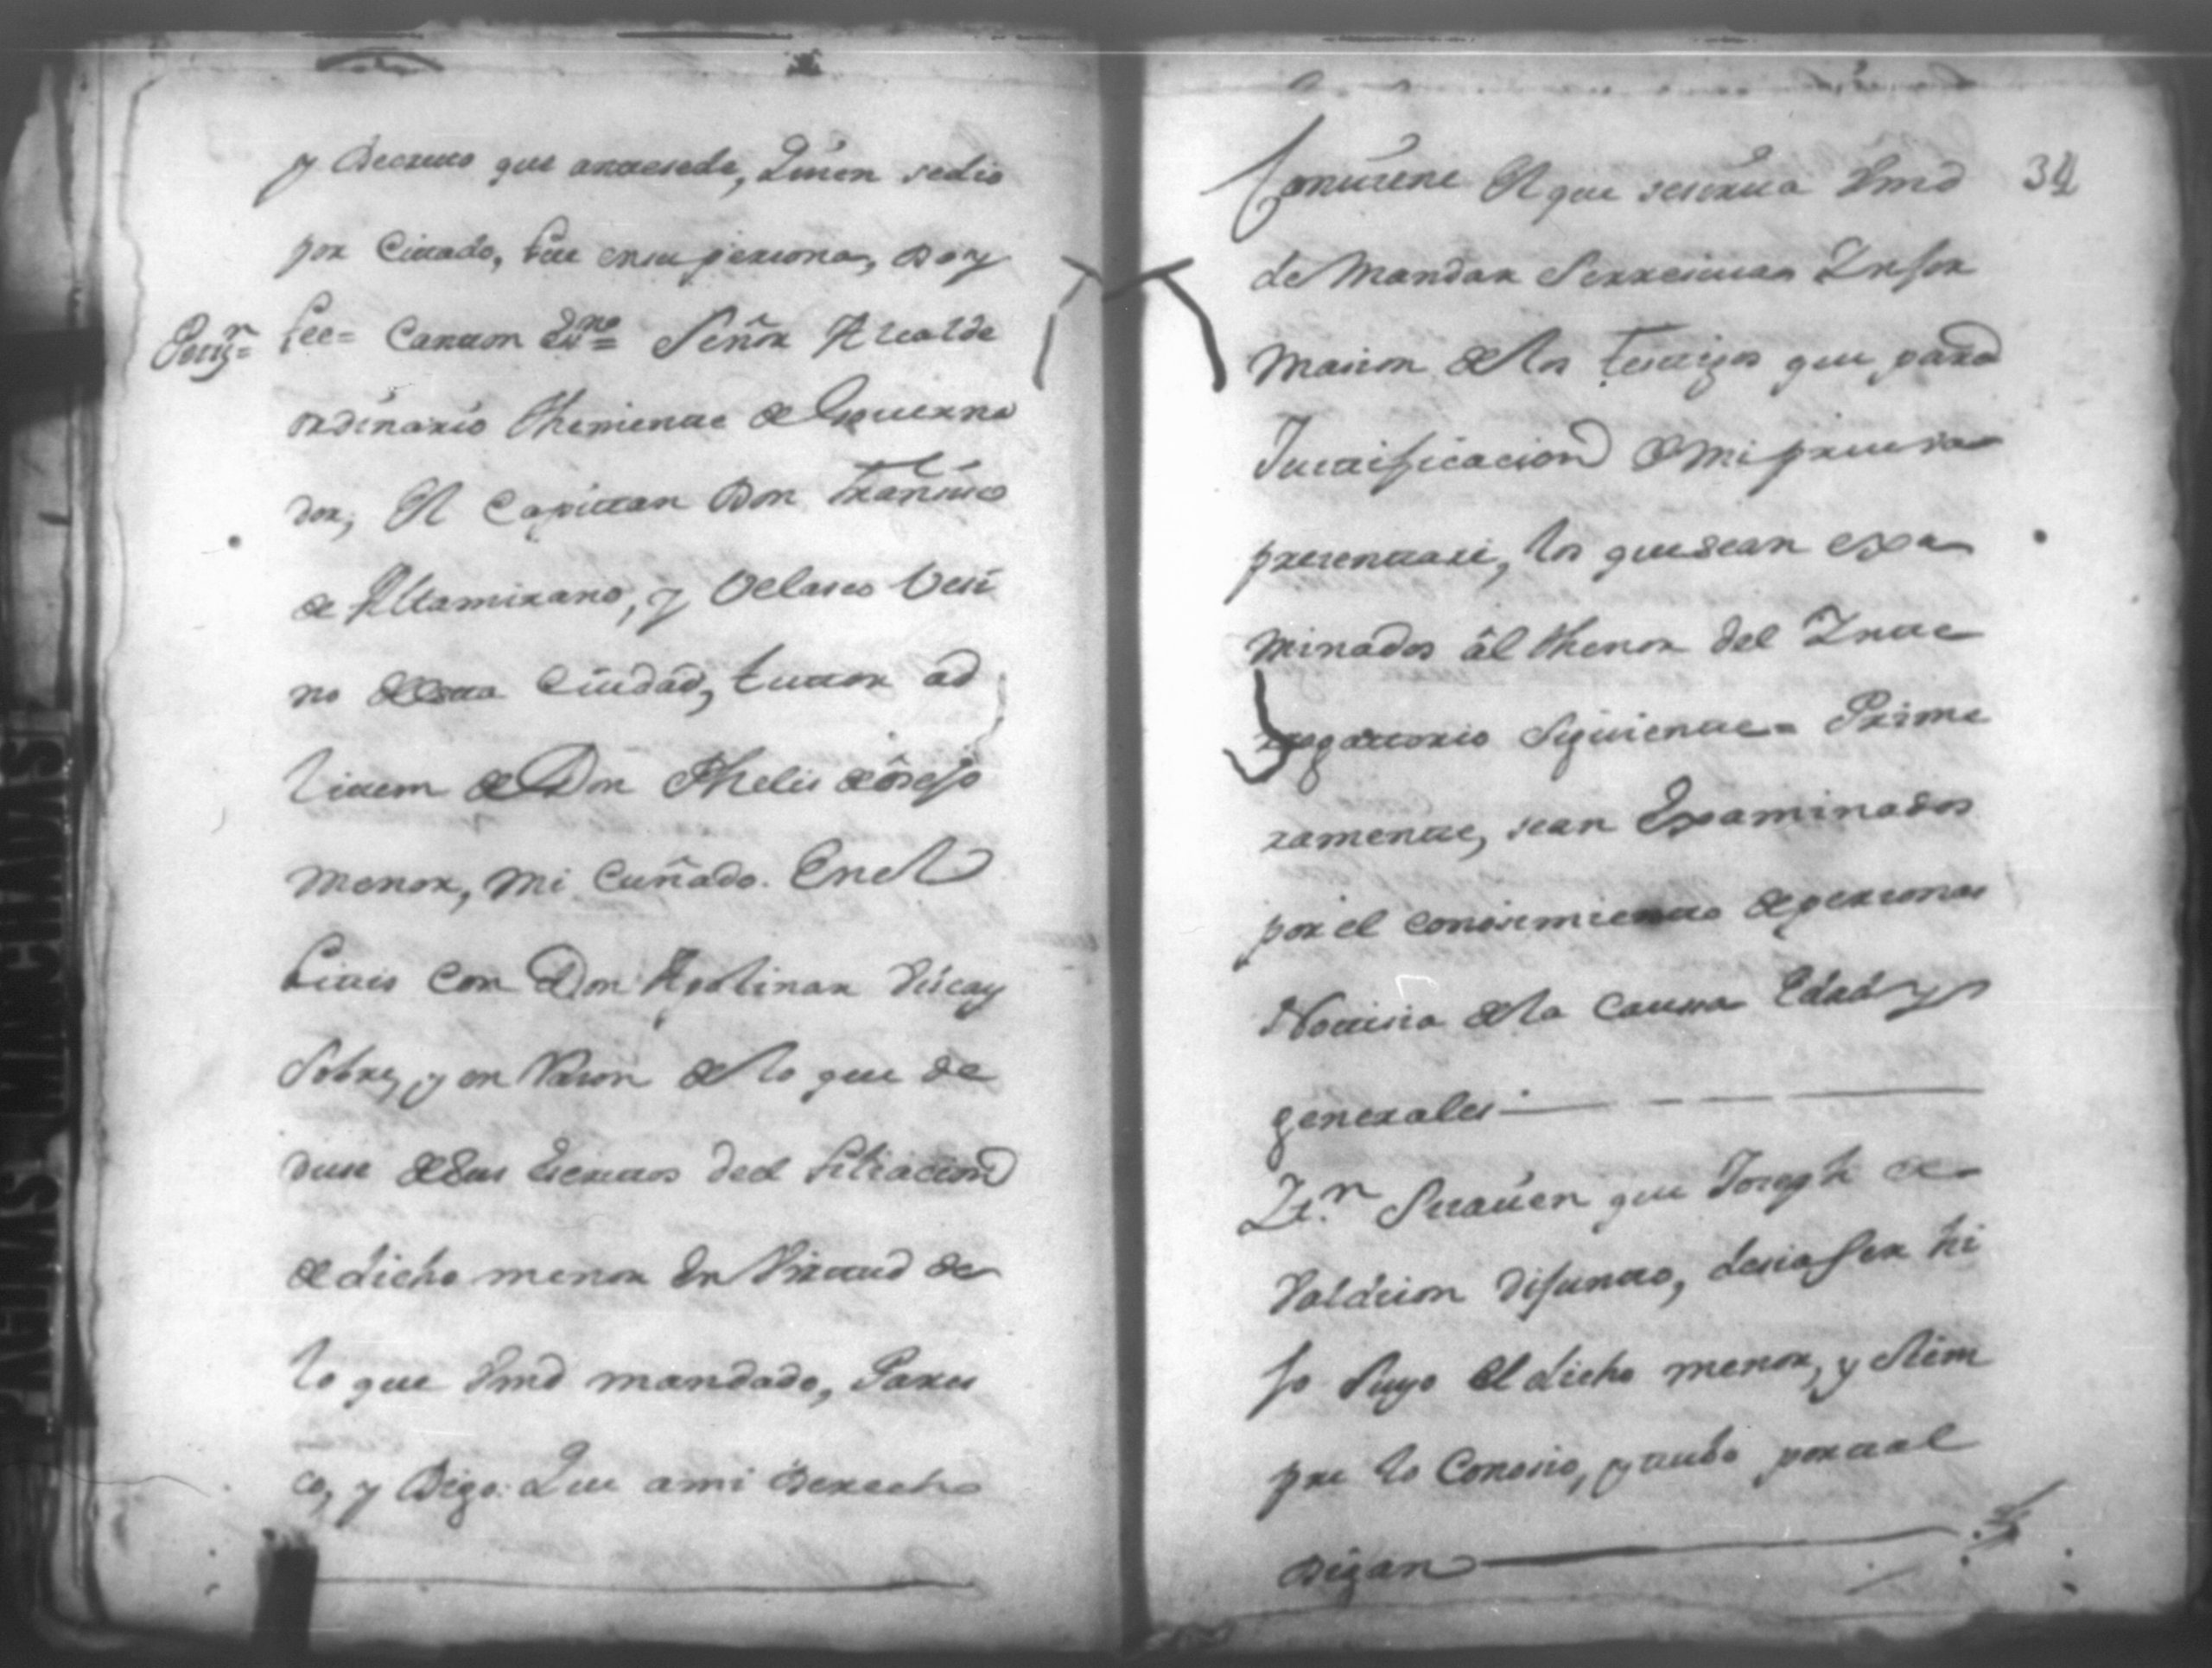 y Decreto que antesede, Quien sedio
por Citado, fue ensu persona, Doy
Petizn= fee= Canton Esno= Señor Alcalde
ordinario Theniente de Governa
dor, El Capittan Don Franisco
de Altamirano, y Velasco Vesi
no deesta Ciudad, tuttor ad
litem de Don Phelis de orejo
Menor, mi Cuñado. Enel
litis Con Don Apolinar Viscay
Sobre, y en Rason de lo que de
duse desus Escritos del filiacion
de dicho menor En Virtud de
lo que Vmd mandado, Pares
co, y Digo: Que ami Derecho
34
Conviene El que seserva Vmd
de Mandar Serresivan Infor
masion delos testigos que para
Justificacion de mi prueva
presentare, los que sean exa
minados âl thenor del Inte
rrogattorio Siguiente= Prime
ramente, sean Examinados
por el conosimiento de personas
Notisia dela Caussa Edad y
generales
It.n Sisaven que Joseph de
Valdision difunto, desia ser hi
jo Suyo El dicho menor, y Siem
pre lo Conosio, y tubo por tal
Digan